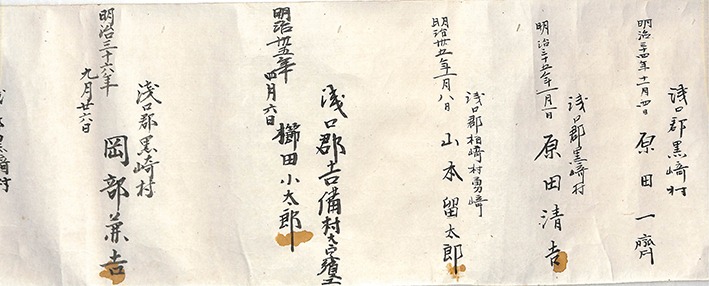 明治三十四年十一月四日
浅口郡黒﨑村
原田一齊
明治三十五年一月一日
浅口郡黒﨑村
原田清吉
明治卅五年一月八日
浅口郡柏﨑村勇﨑
山本留太郎
明治卅五年四月六日
浅口郡吉備村大字
櫛田小太郎
明治三十六年九月廿六日
浅口郡黒崎村
岡部兼吉
黒崎村